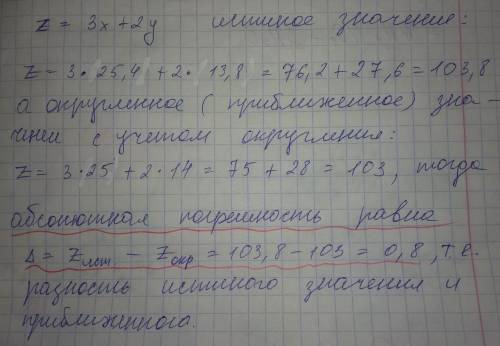 z = 3x + 2y истиное значение:
z = 3·25,4 + 2·13,8 = 76,2 + 27,6 = 103,8
а округленное (приближенное) зна-
чение с учетом округления:
z = 3·25 + 2·14 = 75 + 28 = 103, тогда
абсолютная погрешность равна
Δ = Zист. − Zокр = 103,8 − 103 = 0,8, т.е.
разность истиного значения и
приближенного.